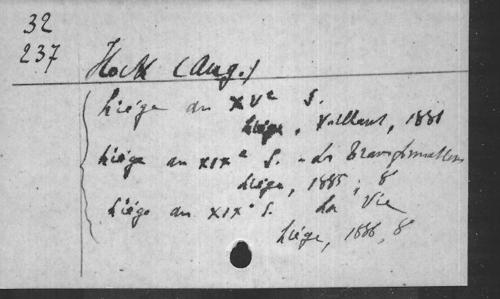 32
237
Hock (Aug.)
Liége au XVe S.
Liége, Vaillant, 1881
Liége au XIXe S. - Les Transformations
Liége, 1885, 8
Liége au XIXe S. La Vie
Liége, 1886, 8